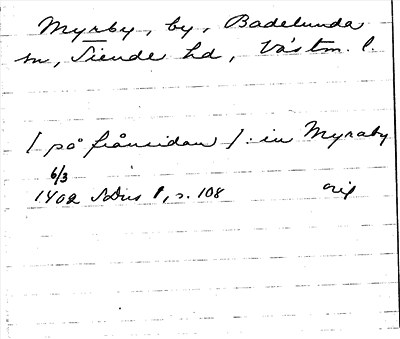 Myrby, by, Badelunda
sn, Siende hd, Västm. l.
[på frånsidan]: in Myraby
6/3
1402 SDns 1, s. 108 orig